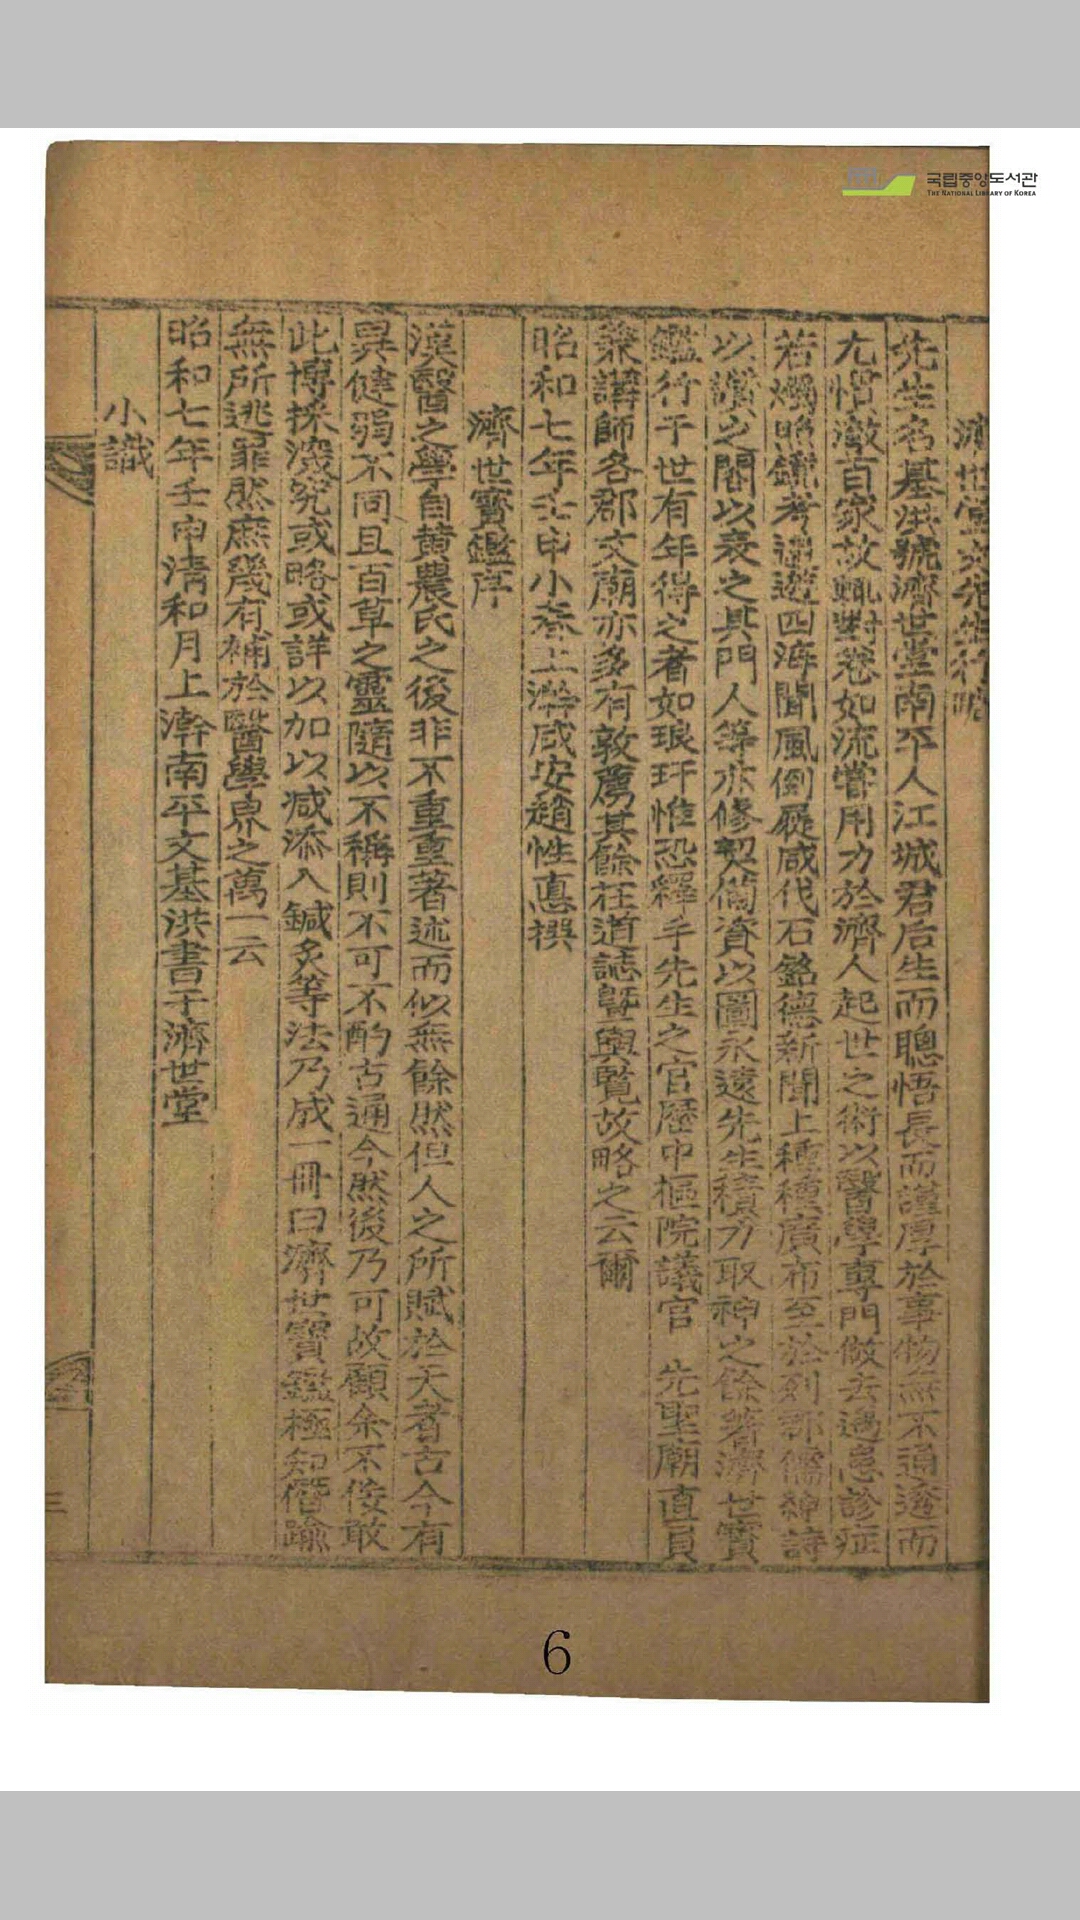 국립중앙도서관
THE NATIONAL LIBRARY OF KOREA
濟世堂文先生行略
先生名基洪號濟世堂南平人江城君后生而聰悟長而謹厚於事物無不通透而
尤慣瀲百家故輒對卷如流嘗用力於濟人起世之術以醫學專門倣去遇患診症
若燭照鑑考遊四海聞風倒屣咸代石銘德新聞上種種廣布至於列郡儒紳詩
以讚之閣以表之其門人等亦修契備資以圖永遠先生積力取神之餘著濟世寶
鑑行于世有年得之者如琅玕惟恐釋手先生之官歷中樞院議官 先聖廟直員
兼講師各郡文廟亦多有敦薦其餘在道誌曁輿覽故略之云爾
昭和七年壬申小春上澣咸安趙性悳撰
濟世寶鑑序
漢醫之學自黃農氏之後非不重重著述而似無餘然但人之所賦於天者古今有
異健弱不同且百草之靈隨以不稱則不可不酌古通今然後乃可故顧余不佞敢
此博採深究或略或詳以加以減添入鍼灸等法乃成一冊曰濟世寶鑑極知僭踰
無所逃罪然庶幾有補於醫學界之萬一云
昭和七年壬申淸和月上澣南平文基洪書于濟世堂
小識
三
6